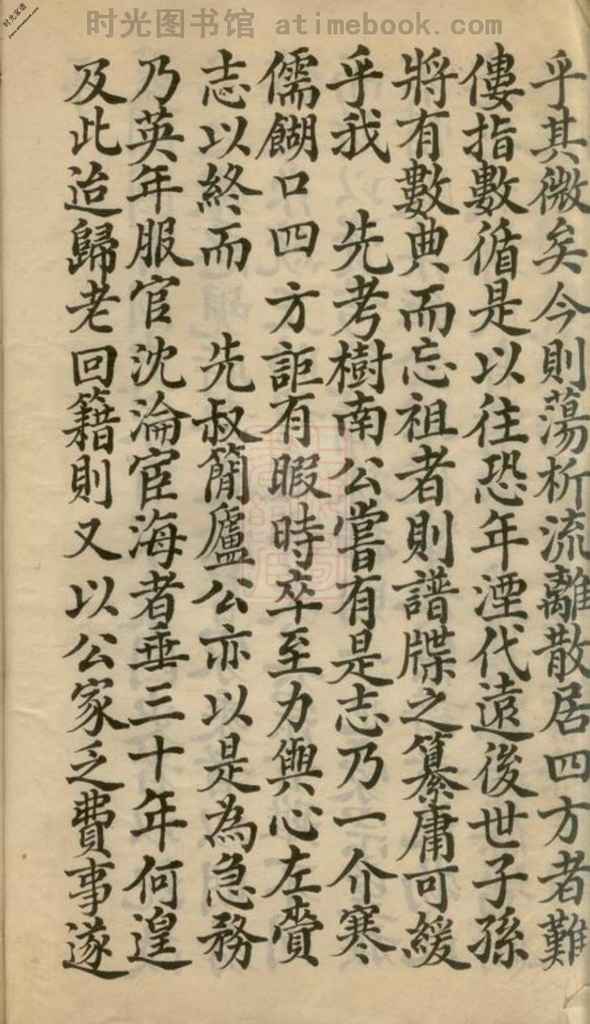 时光图书馆 atimebook.com
乎其微矣今則蕩析流離散居四方者難
僂指數循是以往恐年湮代遠後世子孫
將有數典而忘祖者則譜牒之纂庸可緩
乎我 先考樹南公嘗有是志乃一介寒
儒餬口四方詎有暇時卒至力與心左賫
志以終而 先叔簡廬公亦以是為急務
乃英年服官沈淪宦海者垂三十年何遑
及此迨歸老回籍則又以公家乏費事遂